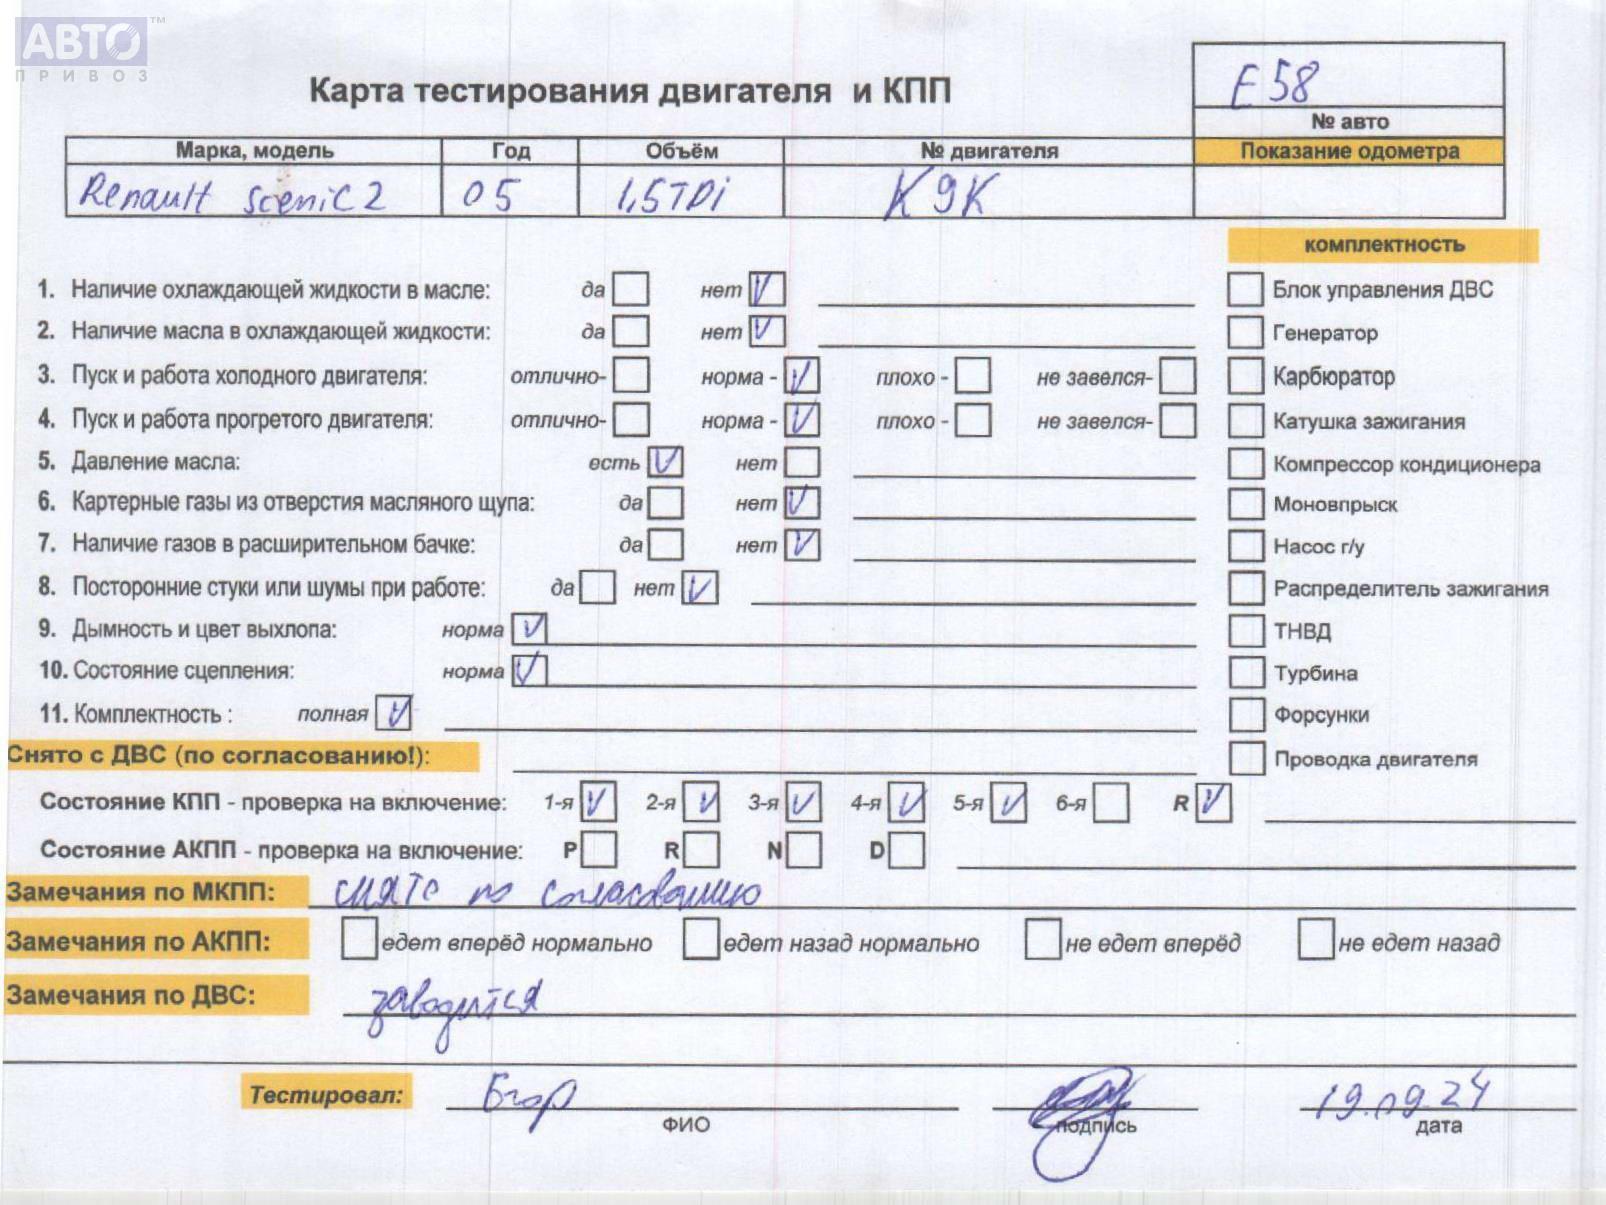 АВТО™
ПРИВОЗ
Карта тестирования двигателя и КПП
E58
№ авто
Марка, модель Год Объём № двигателя Показание одометра
Renault Scenic 2 05 1,5TDi K9K
комплектность
1. Наличие охлаждающей жидкости в масле: да нет V Блок управления ДВС
2. Наличие масла в охлаждающей жидкости: да нет V Генератор
3. Пуск и работа холодного двигателя: отлично- норма - V плохо - не завелся- Карбюратор
4. Пуск и работа прогретого двигателя: отлично- норма - V плохо - не завелся- Катушка зажигания
5. Давление масла: есть V нет Компрессор кондиционера
6. Картерные газы из отверстия масляного щупа: да нет V Моновпрыск
7. Наличие газов в расширительном бачке: да нет V Насос г/у
8. Посторонние стуки или шумы при работе: да нет V Распределитель зажигания
9. Дымность и цвет выхлопа: норма V ТНВД
10. Состояние сцепления: норма V Турбина
11. Комплектность : полная V Форсунки
Снято с ДВС (по согласованию!): Проводка двигателя
Состояние КПП - проверка на включение: 1-я V 2-я V 3-я V 4-я V 5-я V 6-я R V
Состояние АКПП - проверка на включение: P R N D
Замечания по МКПП: снято по согласованию
Замечания по АКПП: едет вперёд нормально едет назад нормально не едет вперёд не едет назад
Замечания по ДВС: заводится
Тестировал: Егор 19.09.24
ФИО подпись дата